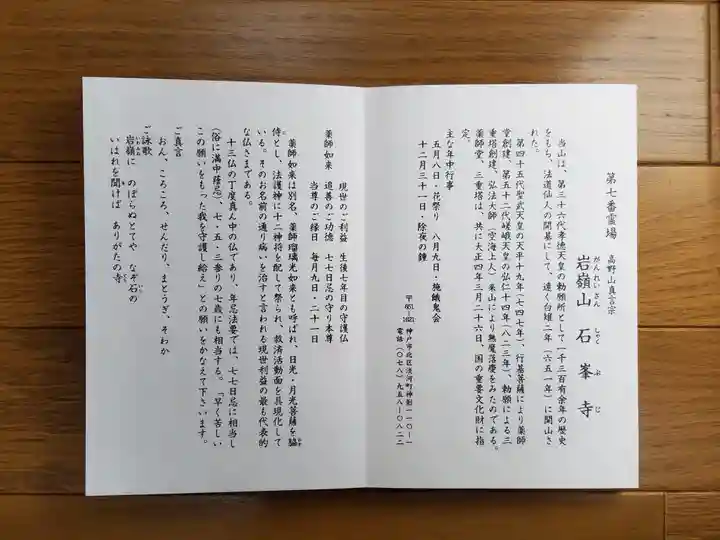 第七番霊場
高野山真言宗
岩嶺山 石峯寺
がんれいさん しゃく ぶ じ
当山は、第三十六代孝徳天皇の勅願所として一千三百有余年の歴史
をもち、法道仙人の開基にして、遠く白雉二年(六五一年)に開山さ
れた。
第四十五代聖武天皇の天平十九年(七四七年)、行基菩薩により薬師
堂創建、第五十二代嵯峨天皇の弘仁十四年(八二三年)、勅願による三
重塔創建、弘法大師(空海上人)来山により無魔落慶をみたのである。
薬師堂、三重塔は、共に大正四年三月二十六日、国の重要文化財に指
定。
主な年中行事
五月八日・花祭り 八月九日・施餓鬼会
十二月三十一日・除夜の鐘
〒651-1621 神戸市北区淡河町神影一一〇-一
電話(〇七八)九五八-〇八二二
現世のご利益 生後七年目の守護仏
薬師如来 追善のご功徳 七七日忌の守り本尊
当尊のご縁日 毎月九日・二十一日
薬師如来は別名、薬師瑠璃光如来とも呼ばれ、日光・月光菩薩を脇
わき
侍とし、法護神に十二神将を配して祭られ、救済活動面を具現化して
じ
いる。そのお名前の通り病いを治すと言われる現世利益の最も代表的
な仏さまである。
十三仏の丁度真ん中の仏であり、年忌法要では、七七日忌に相当し
(俗に満中蔭忌)、七・五・三参りの七歳にも相当する。「早く苦しい
この願いをもった我を守護し給え」との願いをかなえて下さいます。
ご真言
おん、ころころ、せんだり、まとうぎ、そわか
ご詠歌
岩嶺に のぼらぬとてや なぞ石の
いわみね いし
いはれを聞けば ありがたの寺